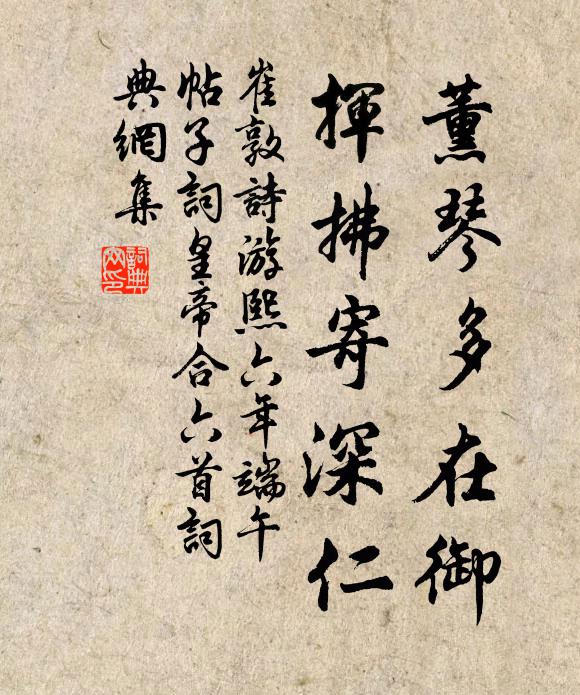 薰琴多在御
揮拂寄深仁
崔敦詩游熙六年端午
帖子詞皇帝合六首詞
典網集
詞典網印